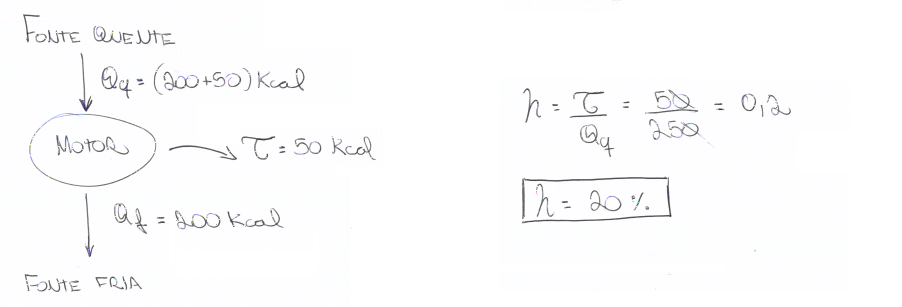 FONTE QUENTE
Qq = (200+50) Kcal
MOTOR
τ = 50 Kcal
Qf = 200 Kcal
FONTE FRIA
η = τ/Qq = 50/250 = 0,2
η = 20 %